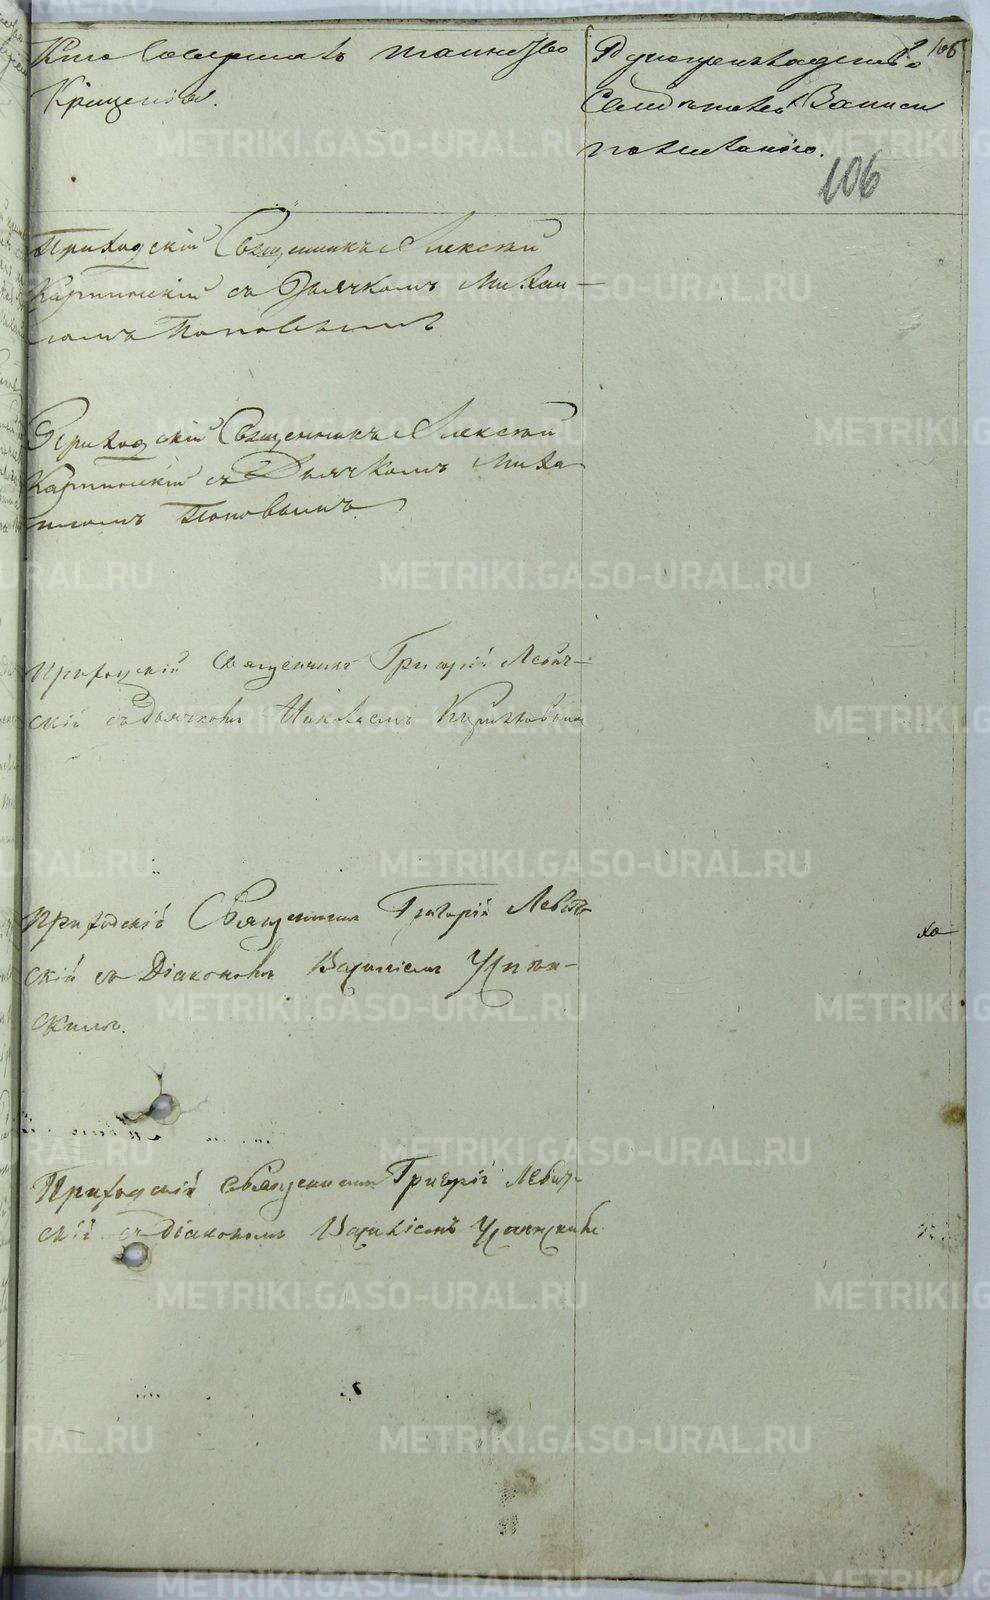 Кто совершалъ таинство
Крещенія.
Рукоприкладство
Свидѣтелей Записи
по желанію.
106
106
Приходскій Священникъ Алексѣй
Карпинскій съ Дьячкомъ Михаи-
ломъ Поповымъ
Приходскій Священникъ Алексѣй
Карпинскій съ Дьячкомъ Миха
иломъ Поповымъ
Приходскій Священникъ Григорій Левит-
скій съ Дьячкомъ Николаемъ
Приходскій Священникъ Григорій Левит-
скій съ Діакономъ
скимъ.
Приходскій Священникъ Григорій Левит-
скій съ Діакономъ
METRIKI.GASO-URAL.RU